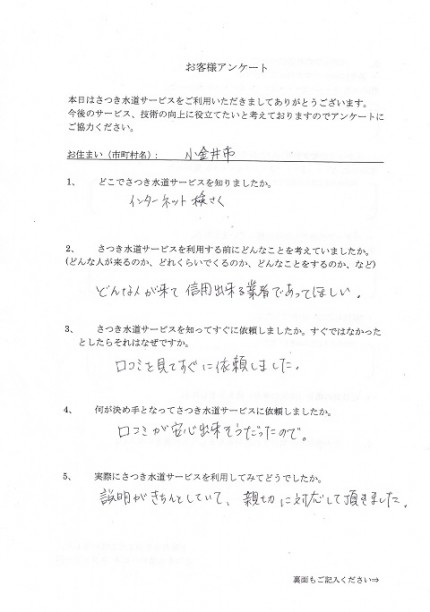 お客様アンケート
本日はさつき水道サービスをご利用いただきましてありがとうございます。
今後のサービス、技術の向上に役立てたいと考えておりますのでアンケートに
ご協力ください。
お住まい（市町村名）： 小金井市
1、 どこでさつき水道サービスを知りましたか。
インターネット検さく
2、 さつき水道サービスを利用する前にどんなことを考えていましたか。
（どんな人が来るのか、どれくらいでくるのか、どんなことをするのか、など）
どんな人が来て 信用出来る業者であってほしい。
3、 さつき水道サービスを知ってすぐに依頼しましたか。すぐではなかった
としたらそれはなぜですか。
口コミを見てすぐに依頼しました。
4、 何が決め手となってさつき水道サービスに依頼しましたか。
口コミが安心出来そうだったので。
5、 実際にさつき水道サービスを利用してみてどうでしたか。
説明がきちんとしていて、親切に対応して頂きました。
裏面もご記入ください→